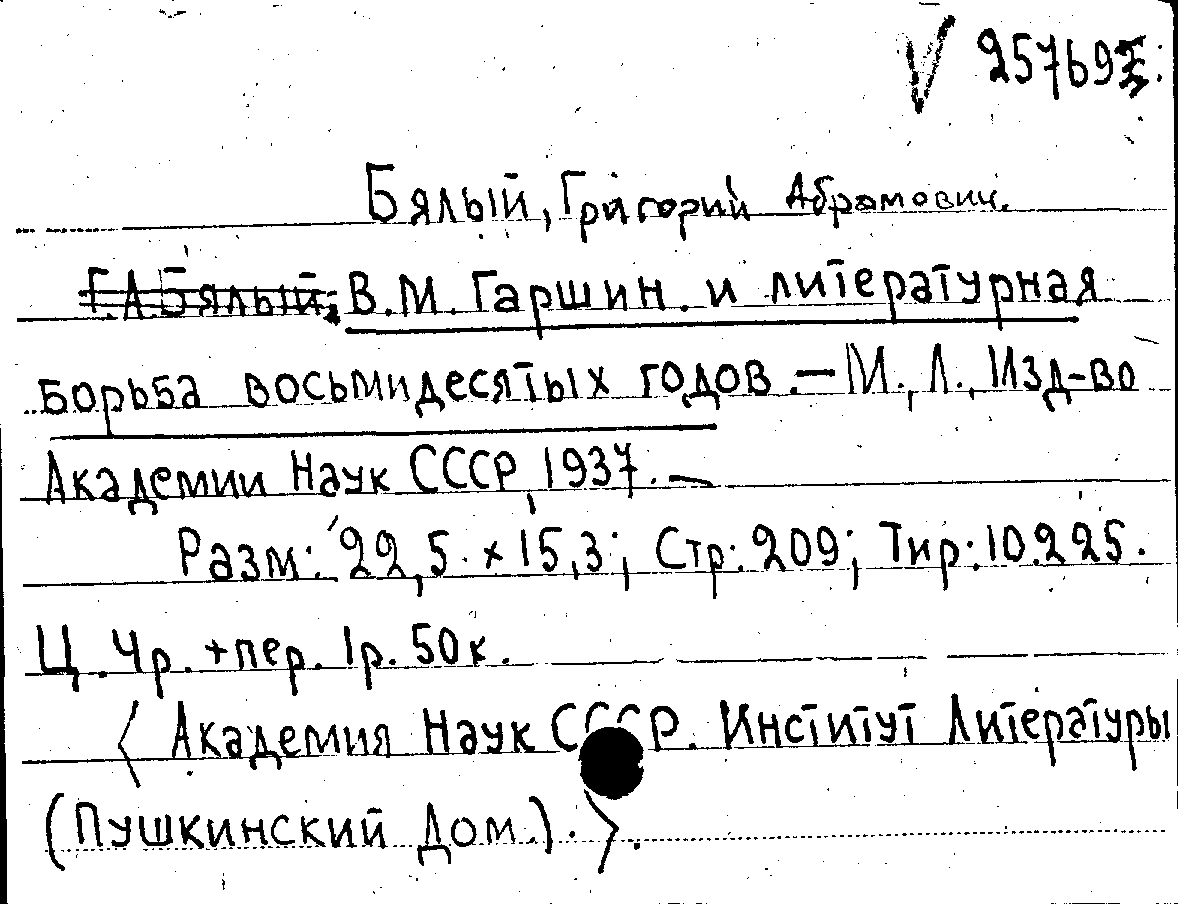 V 25769
Бялый, Григорий Абрамович.
Г.А Бялый, В.М. Гаршин. и литературная
борьба восьмидесятых годов. — М., Л., Изд-во
Академии Наук СССР, 1937. —
Разм: 22,5 × 15,3; Стр: 209; Тир: 10.225.
Ц. 4р. + пер. 1р. 50к.
〈 Академия Наук СССР. Институт Литературы
(Пушкинский Дом.). 〉.